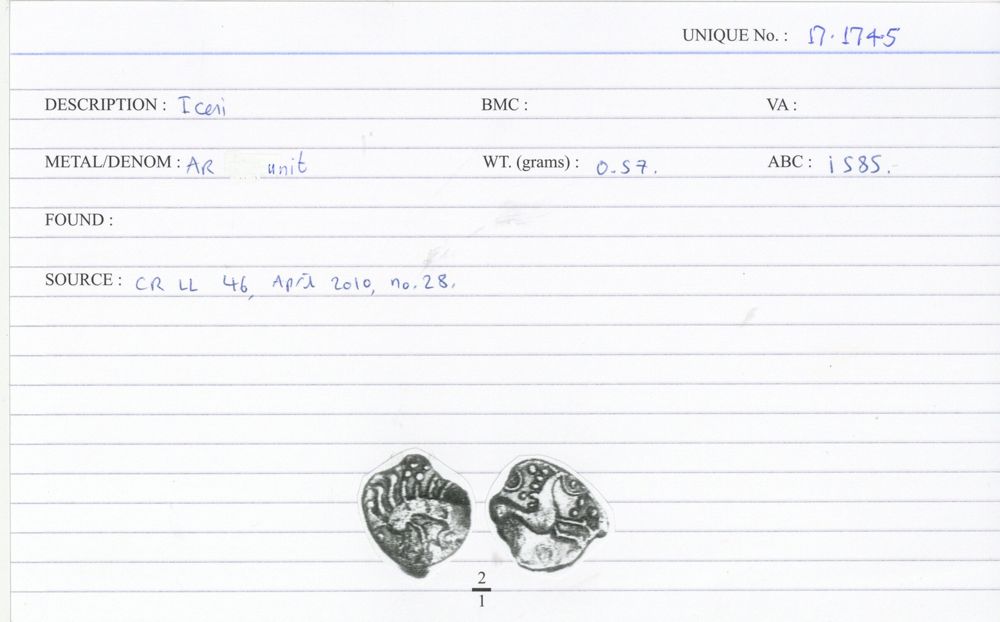 UNIQUE No. : 17.1745
DESCRIPTION : Iceni BMC : VA :
METAL/DENOM : AR unit WT. (grams) : 0.57. ABC : 1585.-
FOUND :
SOURCE : CR LL 46, April 2010, no. 28.
2
1